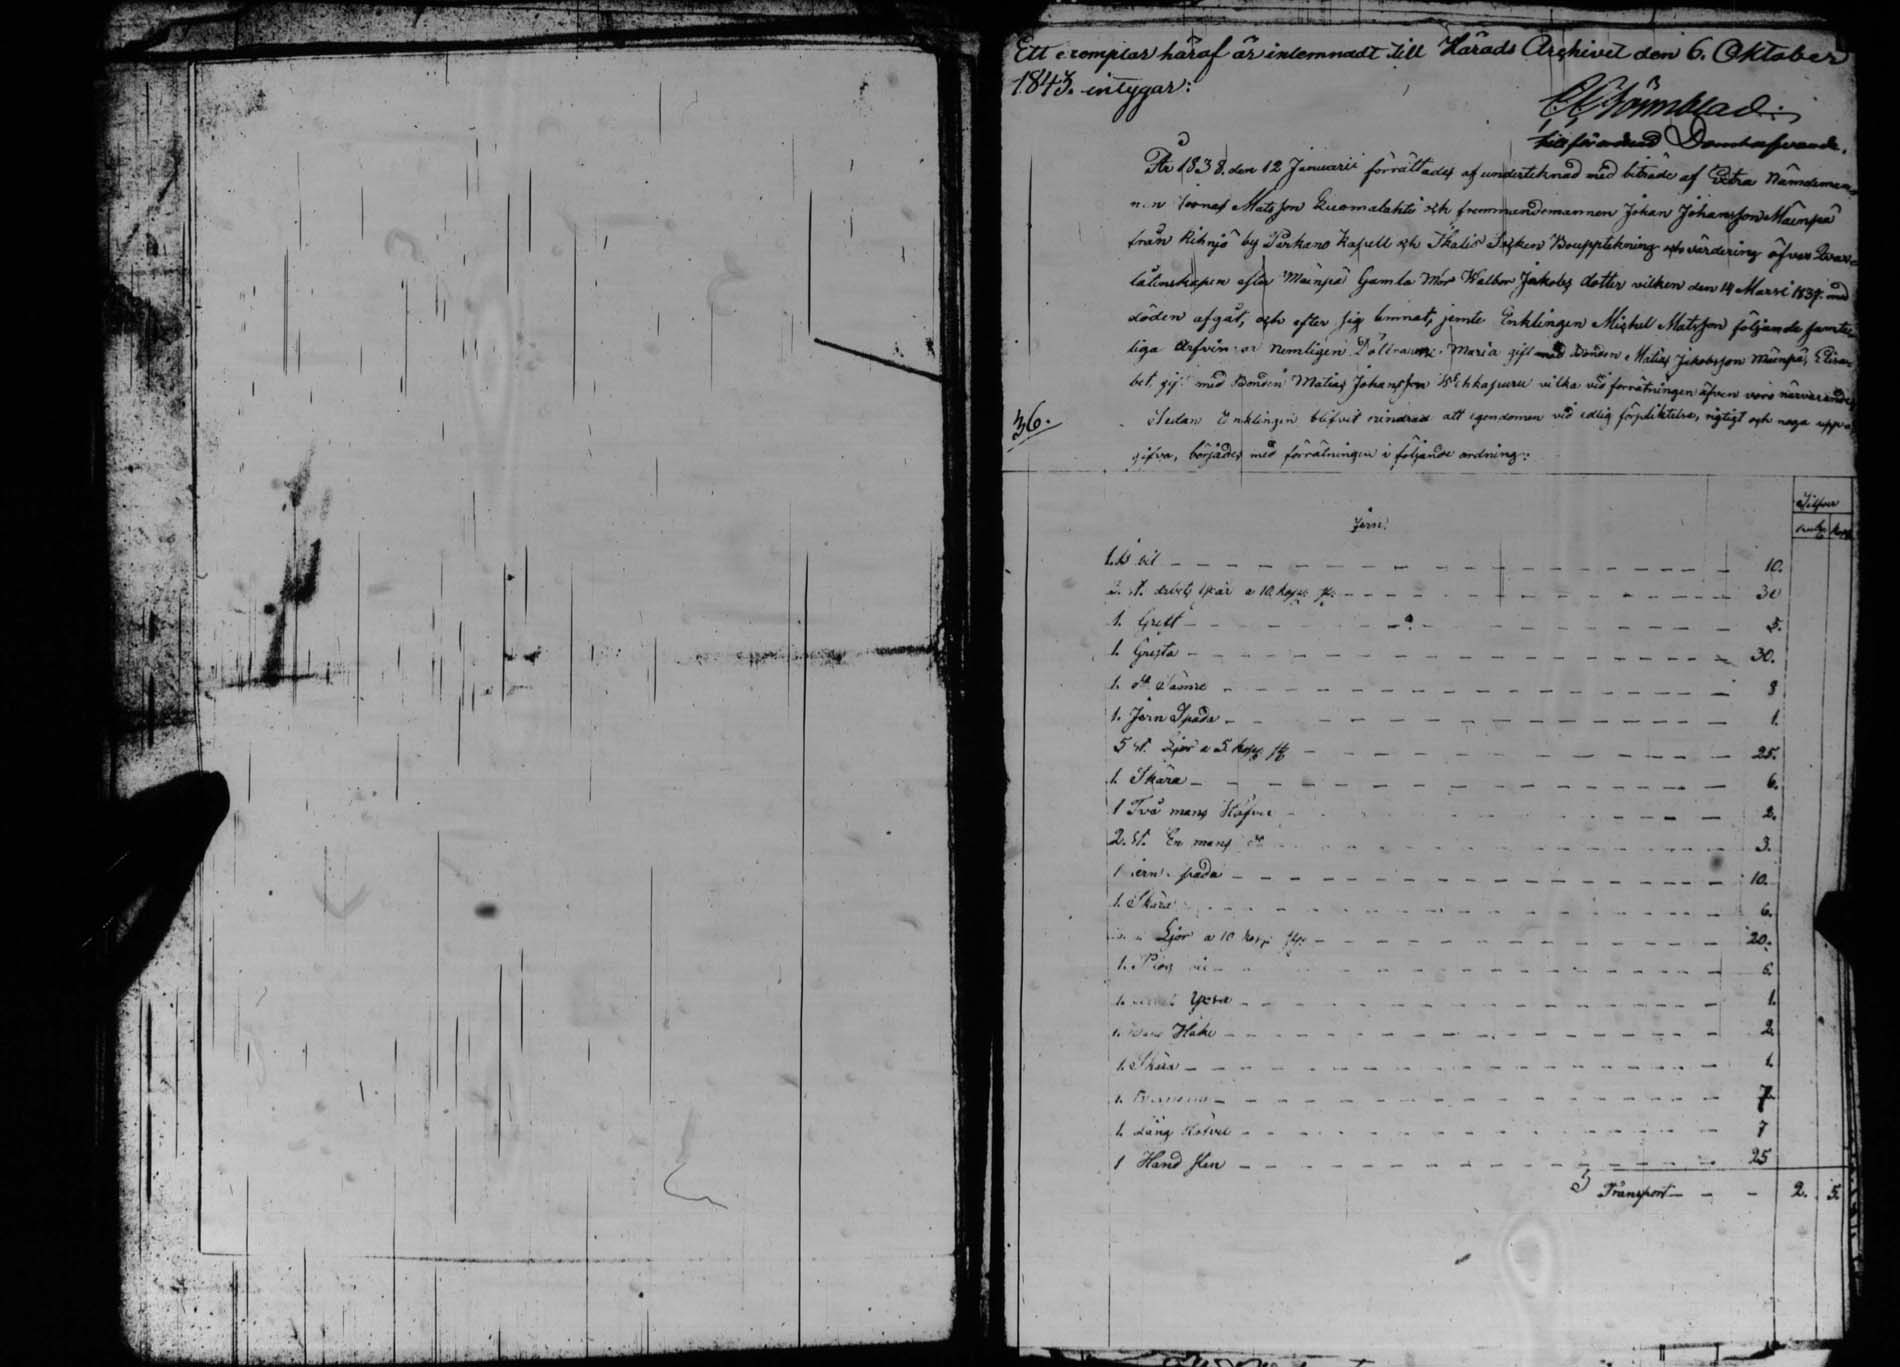 Ett exemplar häraf är inlemnadt till Härads Archivet den 6. Oktober
1843. intygar:
Domhafvande.
År 1838. den 12 Januarii förrättades af undertecknad med biträde af Extra Nämdeman
nen Joonas Matsson Kuomalahti och fremmandemannen Johan Johansson Mäenpä
från Kihniö by Parkano Kapell och Ikalis Socken Bouppteckning och värdering öfver Qvar-
låtenskapen efter Mäenpä Gamla Mor Walbor Jakobs dotter vilken den 14 Marsi 1837. med
döden afgåt, och efter sig lemnat, jemte Enklingen Michel Matsson följande samte-
liga Arfvingar Nemligen Döttrarne Maria gift med Bonden Matias Jakobsson Mäenpä, Elisa-
bet, gift med Bonden Matias Johansson vilka vid förrätningen äfven voro närvarande,
36.
Sedan Enklingen blifvit erindrad att egendomen vid edlig förpliktelse, rigtigt och noga upp-
gifva, börjades med förrätningen i följande ordning:
Silfver
Jern.
1. Is bil 10.
3. st. arbets yxar a 10. kop. st. 30
1. Gritt 5.
1. Gryta 30.
1. do sämre 8
1. Jern Spada 1.
5 st. Ljor a 5. kop. st. 25.
1. Skära 6.
1 Två mans 2.
2. st. En mans do 3.
1 Jern spada 10.
1. Skära 6.
Ljor a 10 kop. st. 20.
1. 5.
1. Yxa 1.
1. Hake 2.
1. Skära 1.
1. 7.
1. Lång 7
1 Hand sten 25
Transport 2. 5.